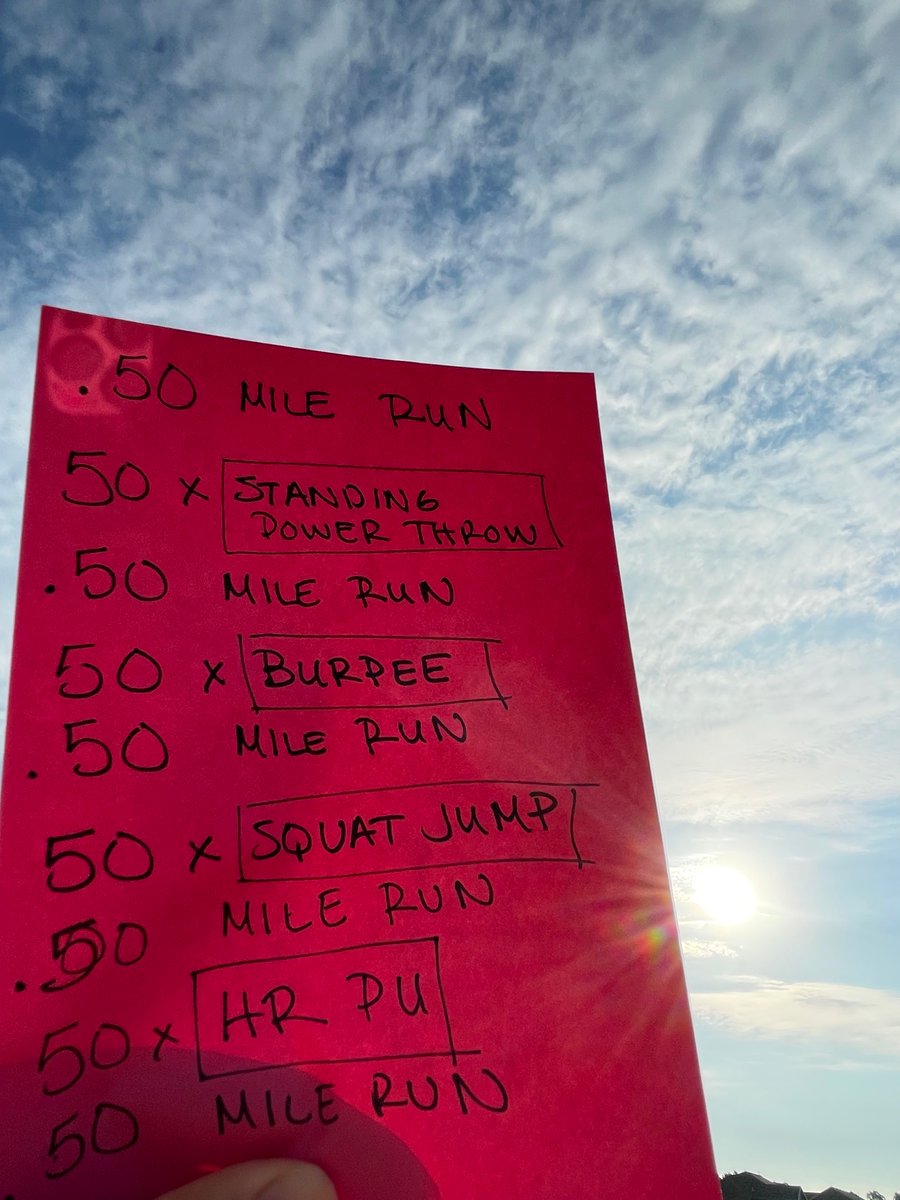 .50 MILE RUN
50 x STANDING
POWER THROW
.50 MILE RUN
50 x BURPEE
.50 MILE RUN
50 x SQUAT JUMP
.50 MILE RUN
50 x HR PU
.50 MILE RUN